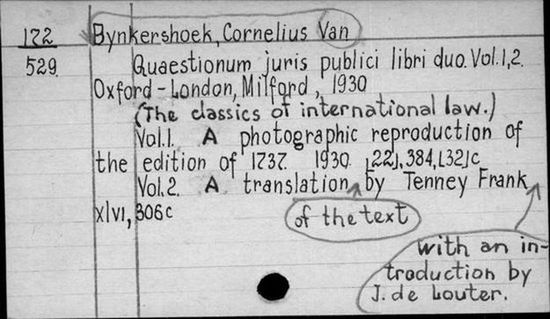 172 Bynkershoek, Cornelius Van
529. Quaestionum juris publici libri duo. Vol.1,2.
Oxford-London, Milford, 1930
(The classics of international law.)
Vol.1. A photographic reproduction of
the edition of 1737. 1930. [22], 384, [32]c
Vol.2. A translation by Tenney Frank
xlvi, 306c
of the text
with an in-
troduction by
J. de Louter.